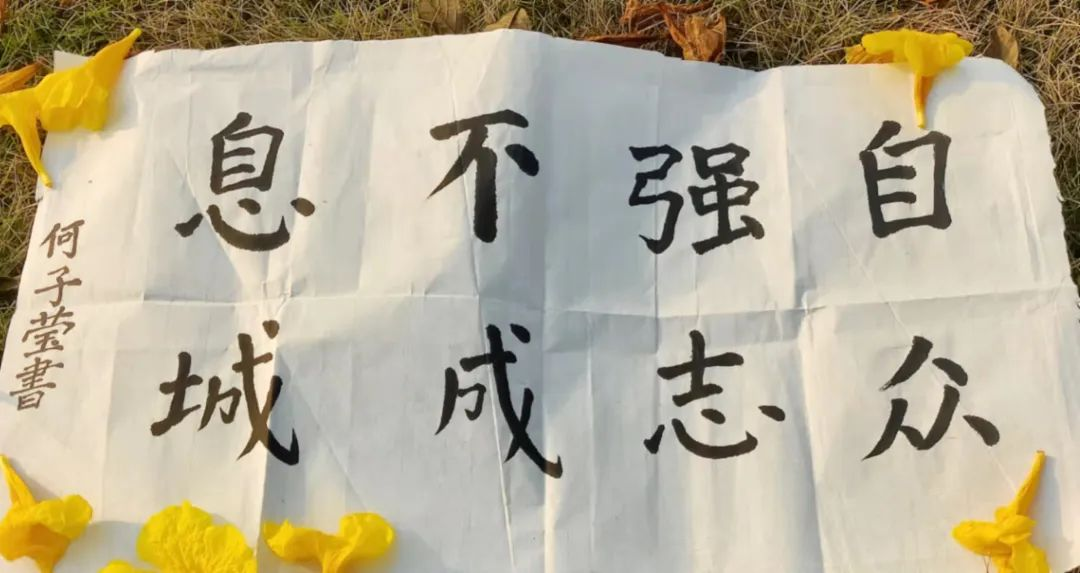 自强不息
众志成城
何子莹書